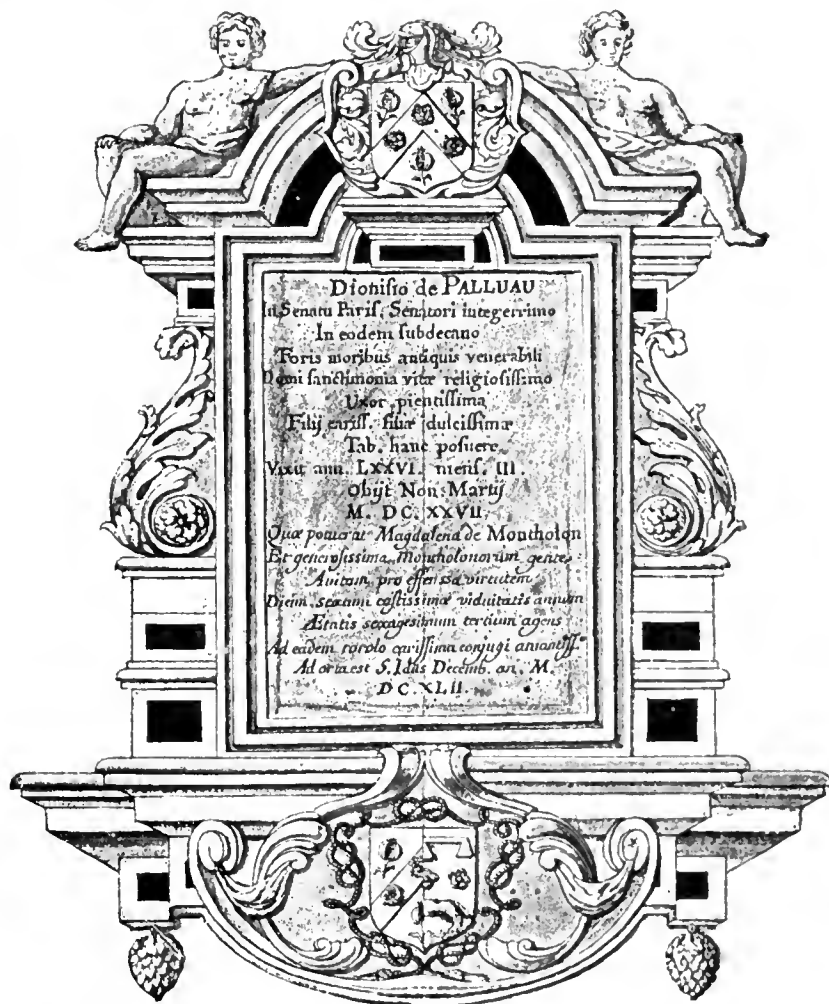 Dionisio de PALLUAU
In Senatu Paris. Senatori integerrimo
In eodem subdecano
Foris moribus antiquis venerabili
Domi sanctimonia vitæ religiosissimo
Uxor pientissima
Filij cariss. filiæ dulcissimæ
Tab. hanc posuere
Vixit ann. LXXVI. mens. III.
Obijt Non. Martij
M. DC. XXVII.
Quæ posuerat Magdalena de Montholon
Et generosissima Montholonorum gente
Avitam pro effenssa virtutem
Diem sexum castissimæ viduitatis annum
Ætatis sexagesimum tertium agens
Ad eadem carissima conjugi amantiss.
Ad orta est 5. Idus Decemb. an. M.
DC. XLII.